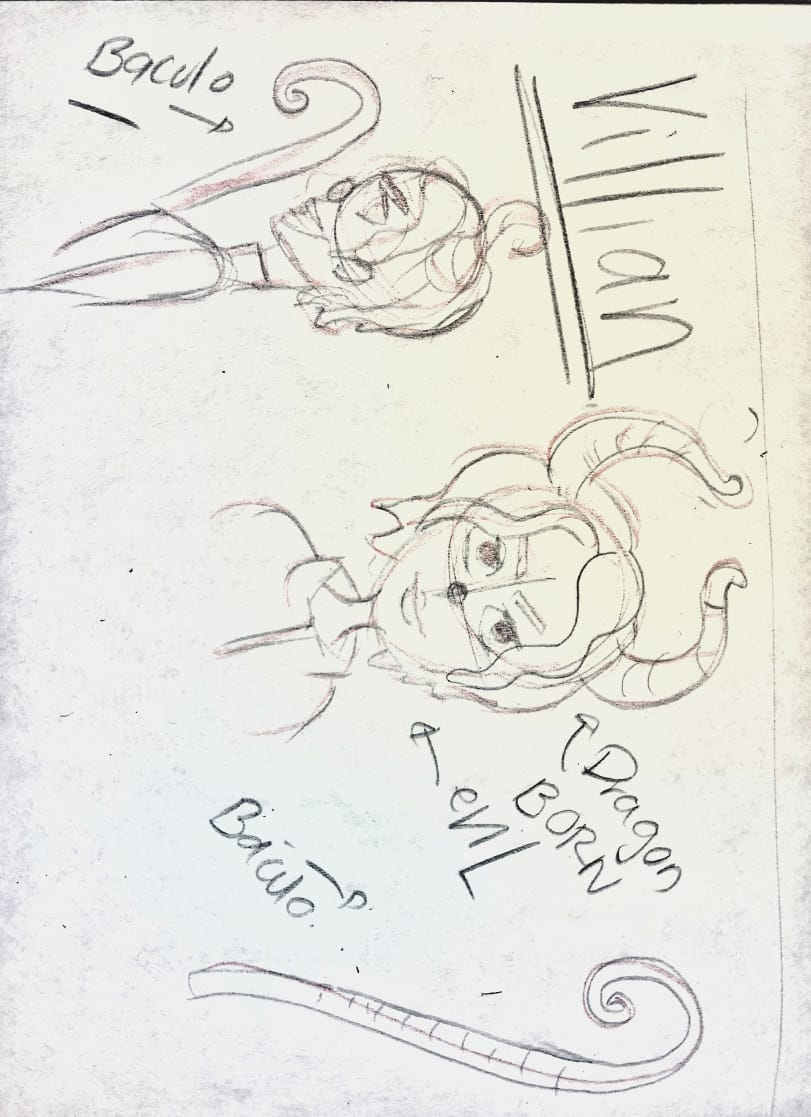 Villian
Dragon
BORN
evil
Baculo
Baculo